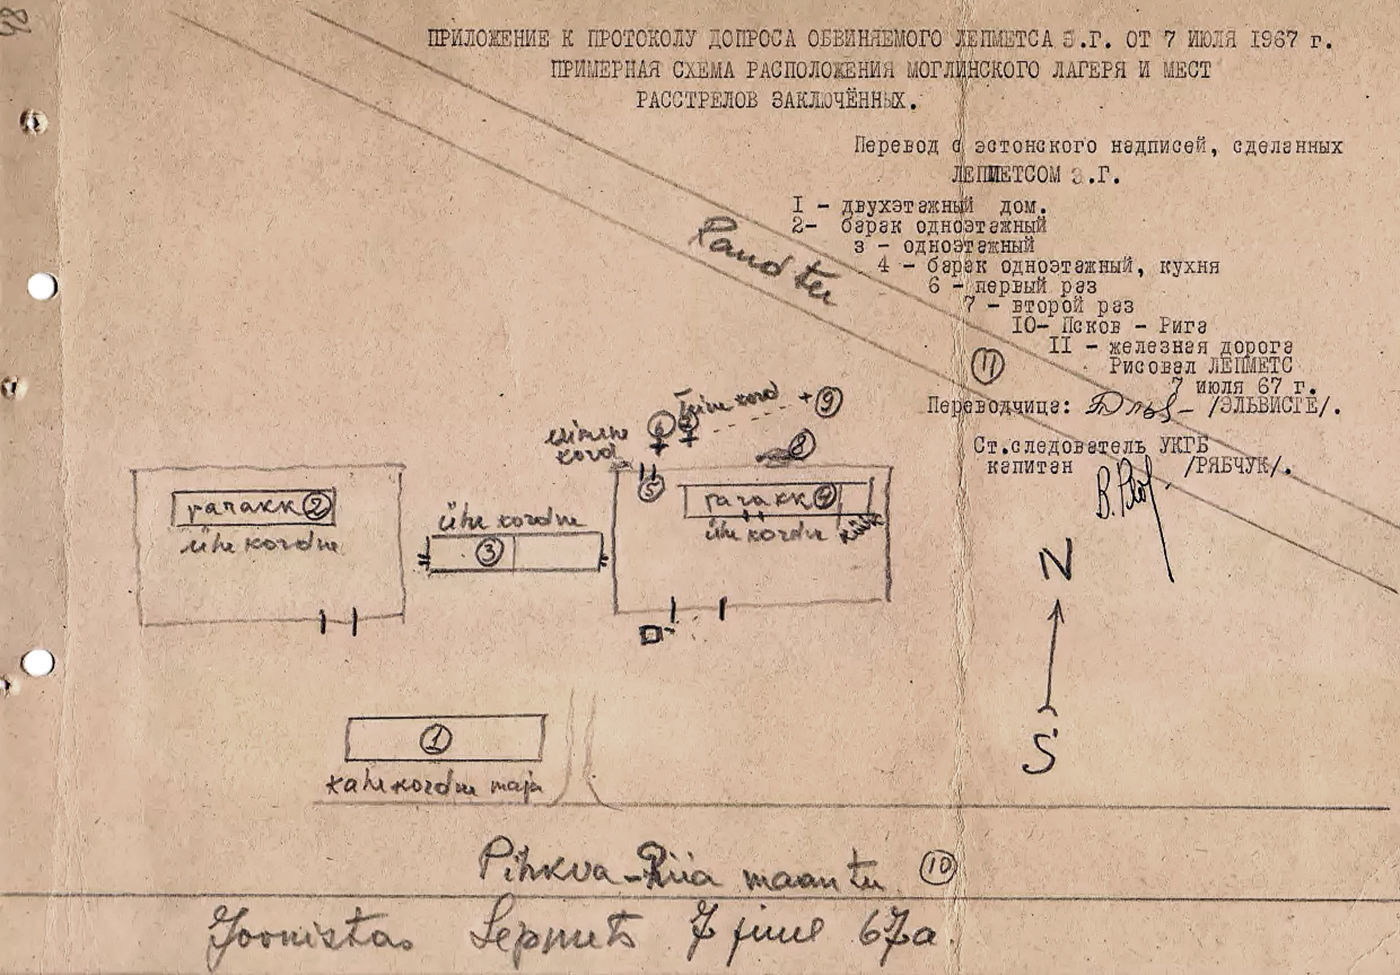 ПРИЛОЖЕНИЕ К ПРОТОКОЛУ ДОПРОСА ОБВИНЯЕМОГО ЛЕПМЕТСА Э.Г. ОТ 7 ИЮЛЯ 1967 г.
ПРИМЕРНАЯ СХЕМА РАСПОЛОЖЕНИЯ МОГЛИНСКОГО ЛАГЕРЯ И МЕСТ
РАССТРЕЛОВ ЗАКЛЮЧЁННЫХ.
Перевод с эстонского надписей, сделанных
ЛЕПМЕТСОМ Э.Г.
I - двухэтажный дом.
2- барак одноэтажный
3 - одноэтажный
4 - барак одноэтажный, кухня
6 - первый раз
7 - второй раз
10- Псков - Рига
II - железная дорога
Рисовал ЛЕПМЕТС
7 июля 67 г.
Переводчица: /ЭЛЬВИСТЕ/.
Ст.следователь УКГБ
капитан /РЯБЧУК/.
Raud tee
11
teine kord + 9
6 7
esimene
kord
8
5
parakk 2
ühe kordne
ühe kordne
3
parakk 4
ühe kordne köök
N
S
1
kahe kordne maja
Pihkva-Riia maantee 10
Joonistas Lepmets 7 juul 67a